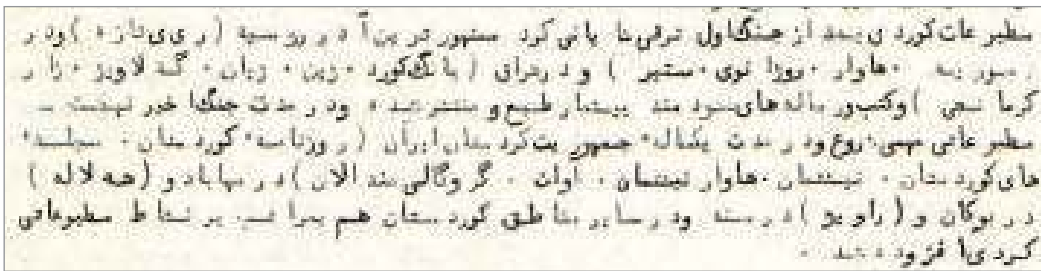 مطبوعات کوردی بعد از جنگ اول ترقی نمایانی کرد مشهورترین آ در روسیه (ریی تازه) ودر
سوریه هاوار · روژا نوی · ستیر) ودر عراق (بانگ کورد · ژین · ژیان · گه لاویژ · زار
کرمانجی) وکتب ورساله های سودمند بیشمار طبع و منتشر شد · ودر مدت جنگ اخیر نهضت
مطبوعاتی مهمی شروع ودر مدت یکساله جمهوریت کردستان ایران (روزنامه کوردستان · مجلسه
های کوردستان · نیشتمان · هاوار نیشتمان · آوات · گروگالی مندالان) در مهاباد و (هه لاله)
در بوکان و (راویژ) در سنه ودر سایر مناطق کوردستان هم بر نشاط مطبوعاتی
کردی افزوده شد ·